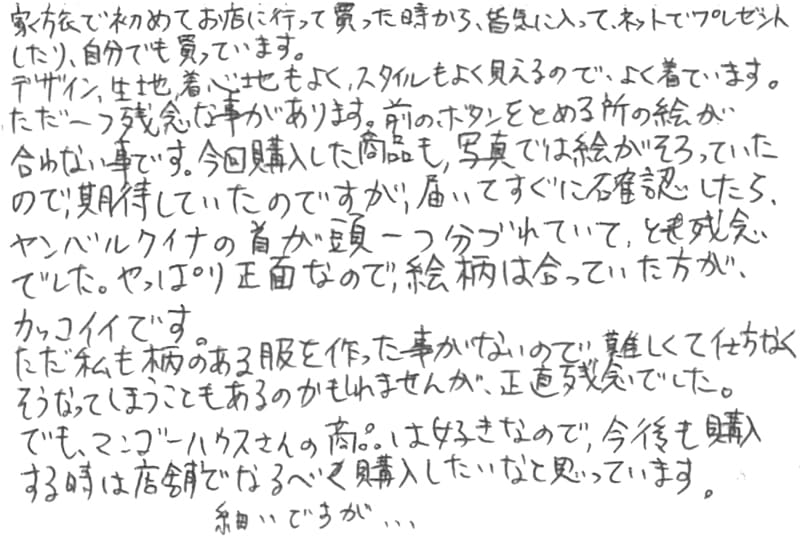 家方衣で初めてお店に行って買った時から、皆気に入って、ネットでプレゼント
したり、自分でも買っています。
デザイン、生地、着心地もよく、スタイルもよく見えるので、よく着ています。
ただ一つ残念な事があります。前のボタンをとめる所の絵が
合わない事です。今回購入した商品も、写真では絵がそろっていた
ので、期待していたのですが、届いてすぐに確認したら、
ヤンバルクイナの首が頭一つ分づれていて、とても残念
でした。やっぱり正面なので、絵柄は合っていた方が、
カッコイイです。
ただ私も柄のある服を作った事がないので難しくて仕方なく
そうなってしまうこともあるのかもしれませんが、正直残念でした。
でも、マンゴーハウスさんの商品は好きなので、今後も購入
する時は店舗でなるべく購入したいなと思っています。
細いですが...